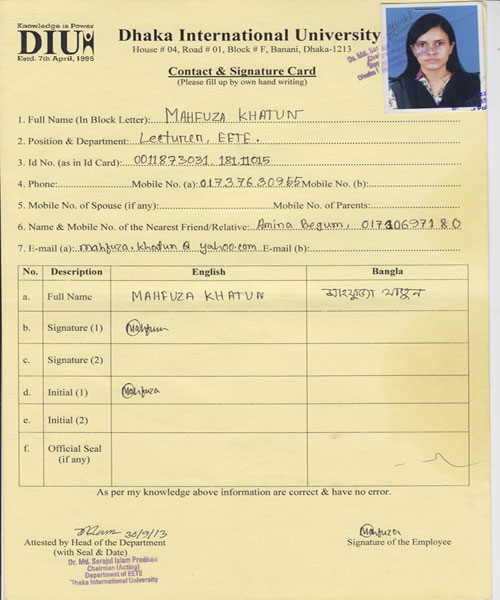 Knowledge is Power
DIU
Estd. 7th April, 1995
Dhaka International University
House # 04, Road # 01, Block # F, Banani, Dhaka-1213
Contact & Signature Card
(Please fill up by own hand writing)
1. Full Name (In Block Letter): MAHFUZA KHATUN
2. Position & Department: Lecturer, EETE.
3. Id No. (as in Id Card): 0011873031, 181.11015
4. Phone: Mobile No. (a): 01737630955 Mobile No. (b):
5. Mobile No. of Spouse (if any): Mobile No. of Parents:
6. Name & Mobile No. of the Nearest Friend/Relative: Amina Begum,
7. E-mail (a): mahfuza.khatun@yahoo.com E-mail (b):
No. Description English Bangla
a. Full Name MAHFUZA KHATUN মাহফুজা খাতুন
b. Signature (1)
c. Signature (2)
d. Initial (1) Mahfuza
e. Initial (2)
f. Official Seal
(if any)
As per my knowledge above information are correct & have no error.
30/9/13
Attested by Head of the Department
(with Seal & Date)
Dr. Md. Serajul Islam Prodhan
Chairman (Acting)
Department of EETE
Dhaka International University
Mahfuza
Signature of the Employee